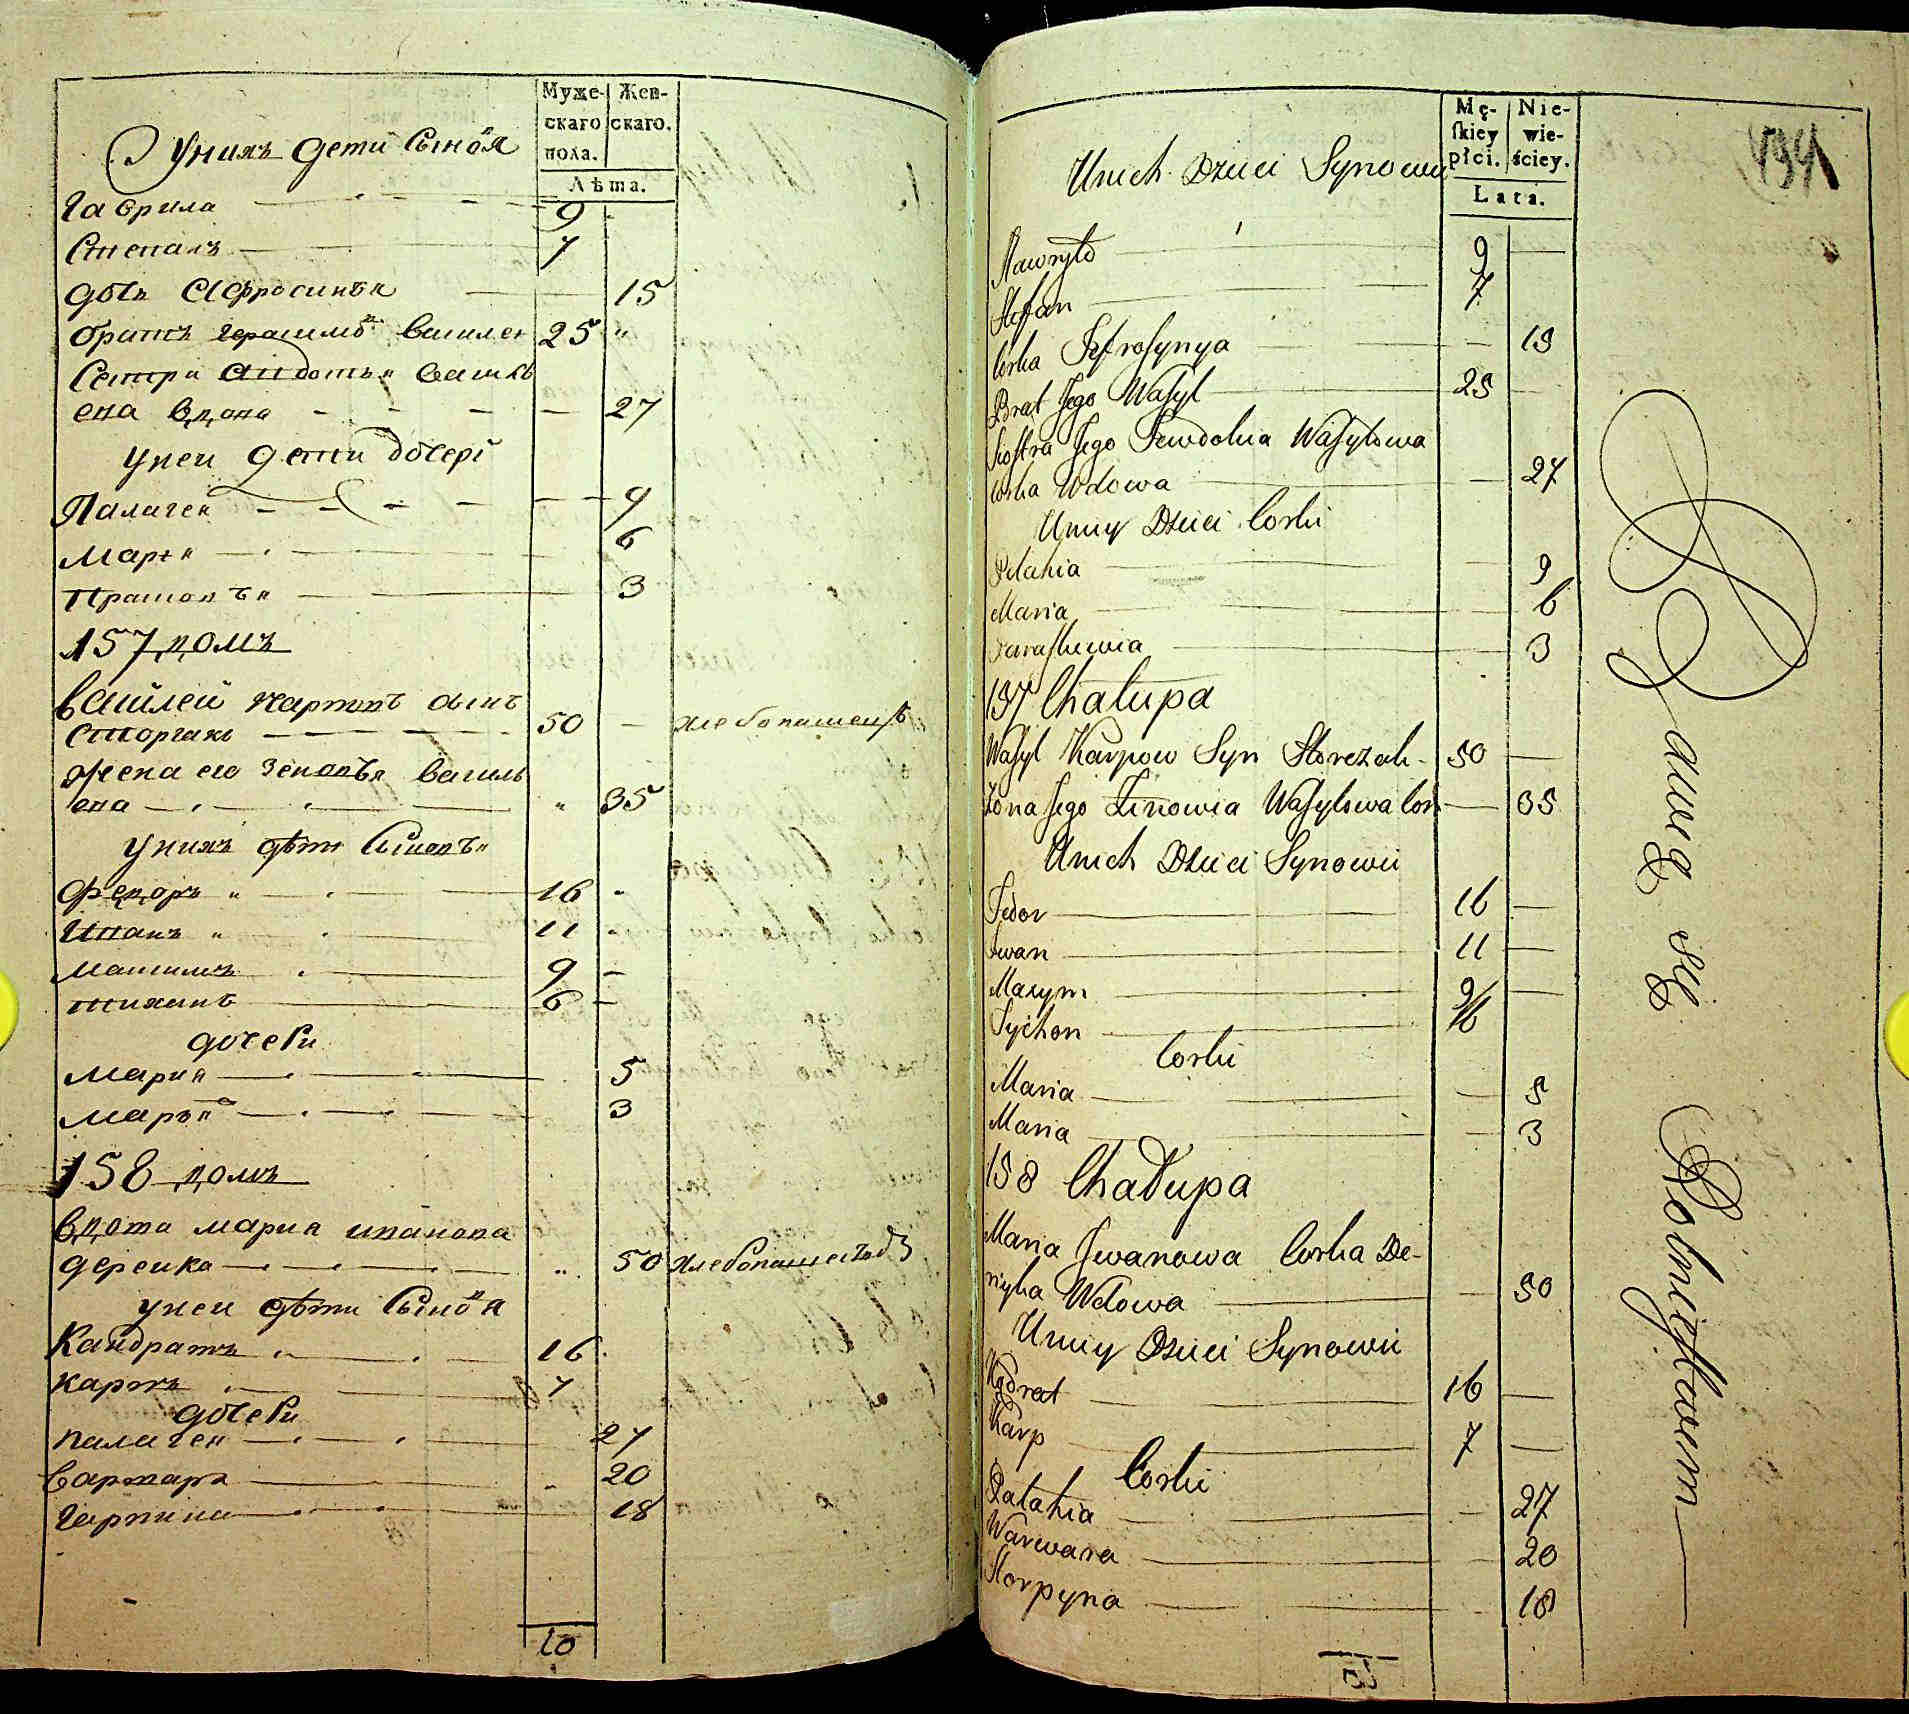 Муже-
скаго
пола.
Жен-
скаго.
Лѣта.
Унихъ дети Сыновя
Гаврила 9
Степанъ 7
дочь Ефросинъя 15
братъ Герасимъ Василев 25
Сестра Авдотья Василь
ева вдова 27
Унеи дети дочери
Палагея 9
Маръя 6
Прасковъя 3
157 домъ
Василей Карповъ сынъ
Сторчакъ 50 хлебопашецъ
Жена его Зеновъя Василь
ева 35
Унихъ дѣти Сыновъя
Федоръ 16
Иванъ 11
Максимъ 9
Тиханъ 6
дочери
Мария 5
Маръя 3
158 домъ
вдова Мария Иванова
дерейка 50 хлебопашество
унеи дѣти Сыновя
Кандратъ 16
Карпъ 7
дочери
Палагея 27
Варвара 20
Гарпина 18
10
Mę-
skiey
płci.
Nie-
wie-
ściey.
Lata.
191
Unich Dzieci Synowii
Hawryło 9
Stefan 7
Corka Jefrosynya 15
Brat Jego Wasyl 25
Siostra Jego Jewdokia Wasylowa
Corka Wdowa 27
Uniey Dzieci Corki
Pelahia 9
Maria 6
Paraskiewia 3
157 Chałupa
Wasyl Karpow Syn Storczak 50
Zona Jego Zinowia Wasylowa Cor 35
Unich Dzieci Synowii
Fedor 16
Iwan 11
Maxym 9
Tychon 6
Corki
Maria 5
Maria 3
158 Chałupa
Maria Iwanowa Corka De-
reyka Wdowa 50
Uniey Dzieci Synowii
Kądrat 16
Karp 7
Corki
Palahia 27
Warwara 20
Horpyna 18
Bawię się Rolnictwem